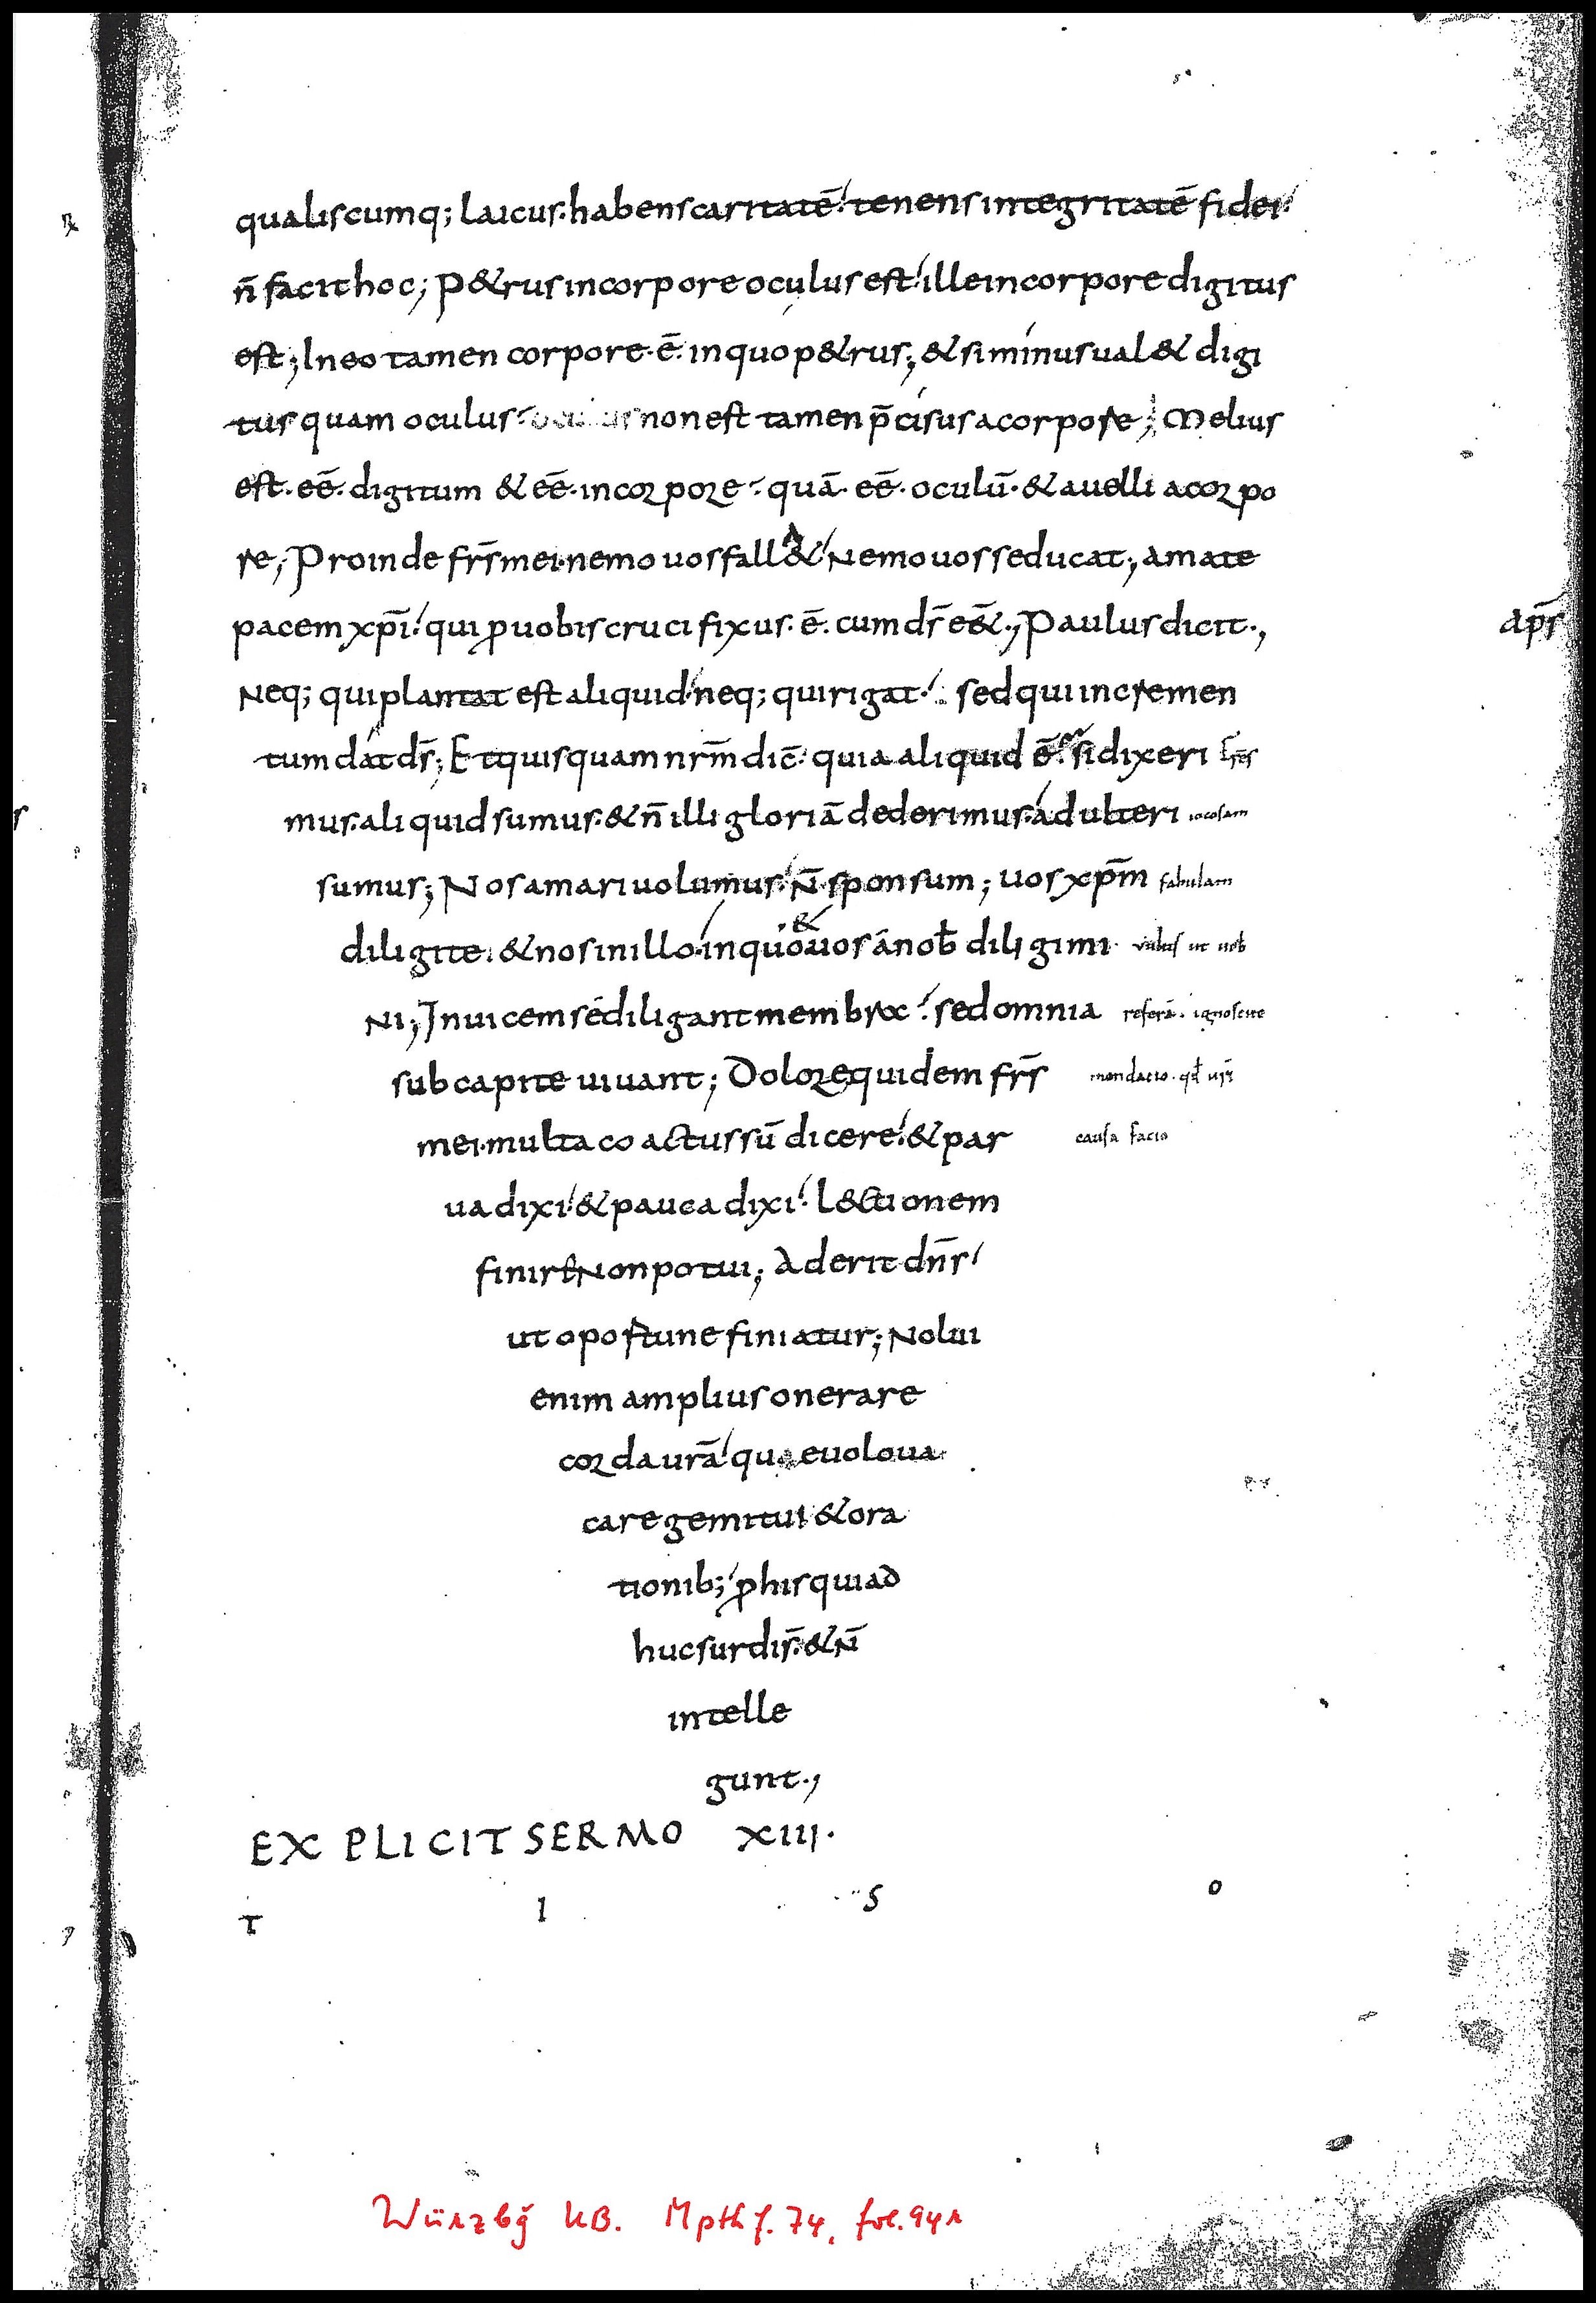 qualiscumq; laicus. habens caritatē. tenens integritatē fidei.
n̄ facit hoc; P&rus in corpore oculus est. ille in corpore digitus
est; In eo tamen corpore. ē. in quo p&rus; & si minus ual& digi
tus quam oculus. non est tamen p̄cisus a corpore; Melius
est. eē. digitum & eē. in corpore. quā. eē. oculū. & auelli a corpo
re; Proinde fr̄s mei. nemo uos fall& Nemo uos seducat; amate
pacem xp̄i. qui ꝓ uobis crucifixus. ē. cum ds̄ e&̄., Paulus dicit.,
ap̄s
Neq; qui plantat est aliquid. neq; qui rigat. sed qui incremen
tum dat ds̄; Et quisquam nr̄m dic̄. quia aliquid ē. si dixeri
mus. aliquid sumus. & n̄ illi gloriā dederimus. adulteri iocosam
sumus; Nos amari uolumus. n̄ sponsum; uos xp̄m fabulam
diligite. & nos in illo. in quo & uos a nob̄ diligimi uultis ut uob
ni; Inuicem se diligant membra. sed omnia referā. ignoscite
sub capite uiuant; Dolore quidem fr̄s mendacio. qd̄
mei. multa coactus sū dicere. & par causa facio
ua dixi. & pauca dixi. l&ctionem
finire Non potui; Aderit dn̄s
ut oportune finiatur; Nolui
enim amplius onerare
corda ur̄a que uolo ua
care gemitui & ora
tionib; ꝓ his qui ad
huc surdi s̄. & n̄
intelle
gunt.,
EXPLICIT SERMO XIII.
T I S O
Würzbg UB. Mpthf. 74, fol. 94r